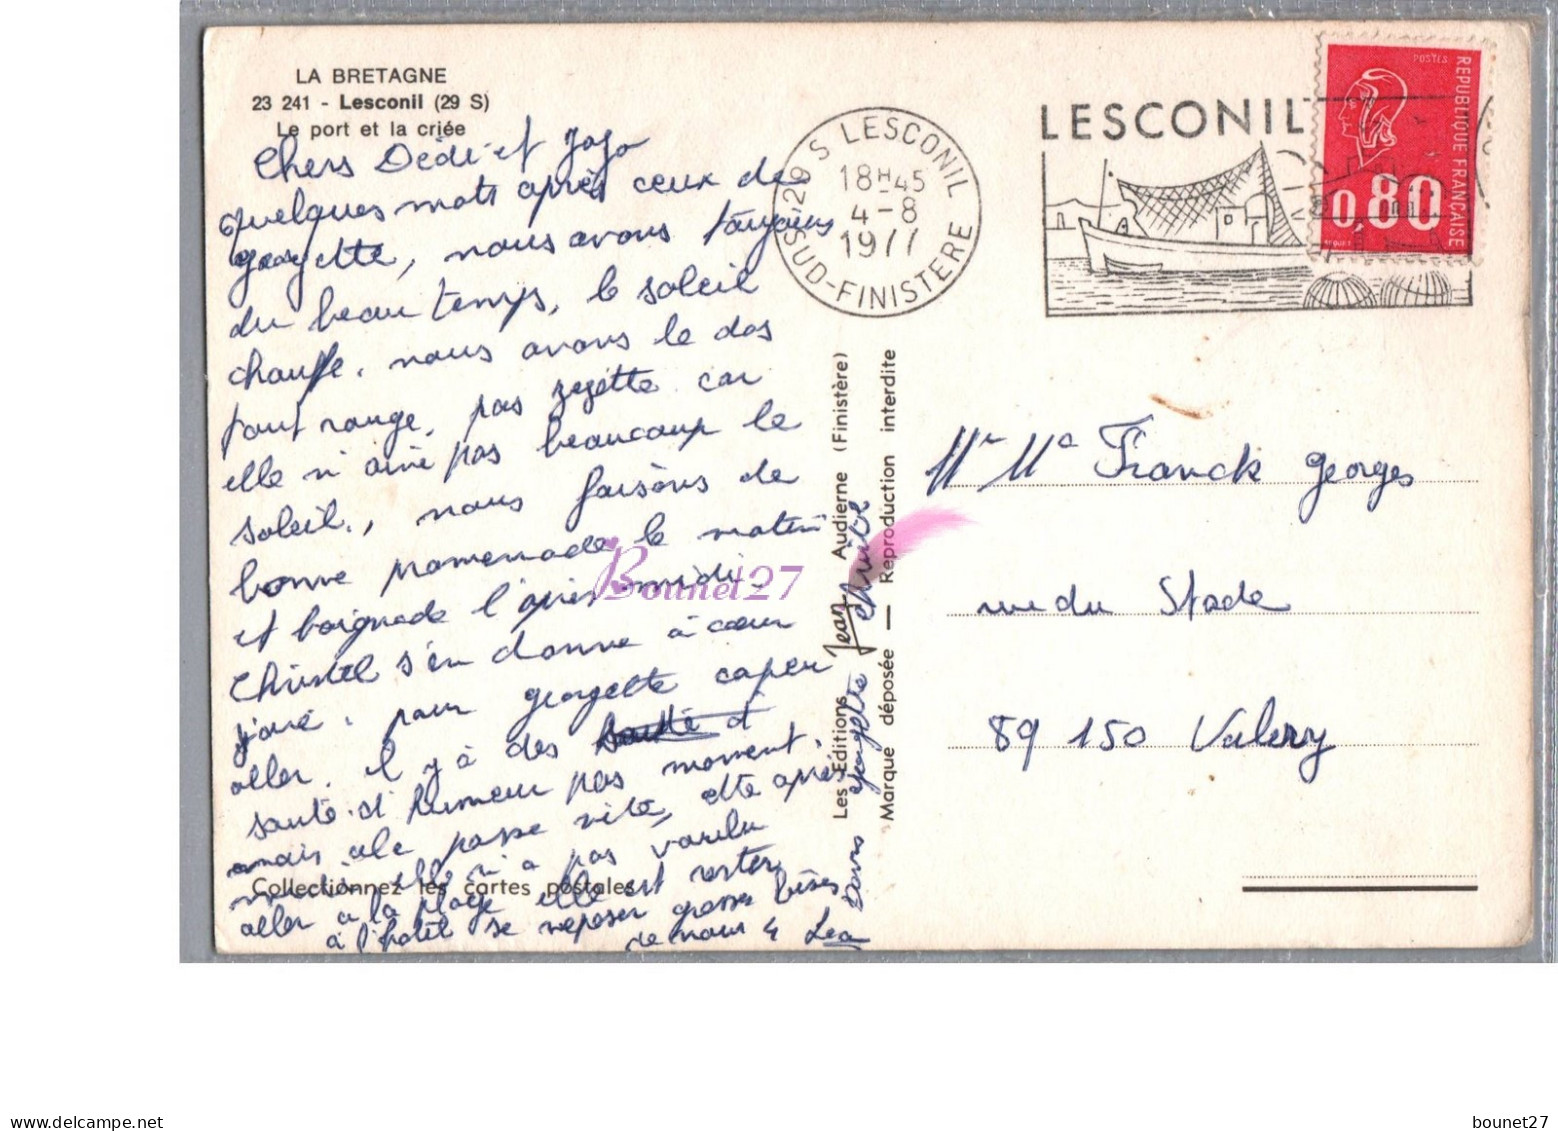 LA BRETAGNE
23 241 - Lesconil (29 S)
Le port et la criée
Chers Dédé et Jojo
quelques mots après ceux de
georgette, nous avons toujours
du beau temps, le soleil
chauffe. nous avons le dos
tout rouge, pas zezette car
elle n'aime pas beaucoup le
soleil., nous faisons de
bonne promenade le matin
et baignade l'après midi.
Christel s'en donne à coeur
joue. pour georgette
aller. il y à des santé d'
santé. d'humeur pas moment.
mais ale passe vite, après
elle n'a pas voulu
aller à la plage elle est rester
à l'hotel se reposer grosses bises
de nous 4 Lea
Jean
Christel
georgette
29 S LESCONIL
18H45
4-8
1977
SUD-FINISTERE
LESCONIL
POSTES
REPUBLIQUE FRANCAISE
0,80
Les Editions Jean Audierne (Finistère)
Marque déposée — Reproduction interdite
Mr Me Franck Georges
rue du Stade
89 150 Valery
Collectionnez les cartes postales
Bounet27
delcampe.net
bounet27